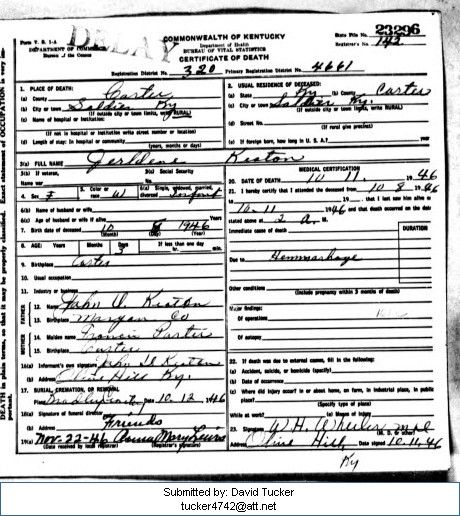 Form V. S. 1-A
DEPARTMENT OF COMMERCE
Bureau of the Census
DELAY
COMMONWEALTH OF KENTUCKY
Department of Health
BUREAU OF VITAL STATISTICS
CERTIFICATE OF DEATH
State File No. 23296
Registrar's No. 142
Registration District No. 320 Primary Registration District No. 4661
1. PLACE OF DEATH:
(a) County Carter
(b) City or town Soldier Ky
(If outside city or town limits, write RURAL)
(c) Name of hospital or institution:
(If not in hospital or institution write street number or location)
(d) Length of stay: In hospital or community
(years, months or days)
2. USUAL RESIDENCE OF DECEASED:
(a) State Ky (b) County Carter
(c) City or town Soldier Ky.
(If outside city or town limits, write RURAL)
(d) Street No.
(If rural give precinct)
(e) If foreign born, how long in U. S. A.? year
3(a) FULL NAME Jerldene Keaton
3(b) If veteran, Name war
3(c) Social Security No.
4. Sex F 5. Color or race W 6(a) Single, widowed, married, divorced Infant
6(b) Name of husband or wife
6(c) Age of husband or wife if alive Years
7. Birth date of deceased 10 8 1946
(Month) (Day) (Year)
8. AGE: Years Months Days 3 If less than one day hr. min.
9. Birthplace Carter
10. Usual occupation
11. Industry or business
FATHER
12. Name John D Keaton
13. Birthplace Morgan Co
MOTHER
14. Maiden name Francis Porter
15. Birthplace Carter
16(a) Informant's own signature John D Keaton
(b) Address Olive Hill Ky.
17. BURIAL, CREMATION, OR REMOVAL
Place Date 10-12, 1946
18(a) Signature of funeral director
(b) Address Friends
19(a) Nov-22-46 Anna Mary Lewis
(Date received by local registrar) (Registrar's signature)
MEDICAL CERTIFICATION
20. DATE OF DEATH 10 11. 1946
21. I hereby certify that I attended the deceased from 10 8 1946
to 10-11 1946 that I last saw him alive on
and that death occurred on the date
stated above at 2 A. M.
DURATION
Immediate cause of death
Due to Hemmorhage
Other conditions
(Include pregnancy within 3 months of death)
Major findings:
Of operations
Of autopsy
22. If death was due to external causes, fill in the following:
(a) Accident, suicide, or homicide (specify)
(b) Date of occurrence
(c) Where did injury occur? In or about home, on farm, in industrial place, in public place?
(Specify type of place)
While at work? (e) Means of injury
23. Signature W. H. Wheeler M.D.
(M. D. or other)
Address Olive Hill Date signed 10-11-46
Ky
Submitted by: David Tucker
tucker4742@att.net